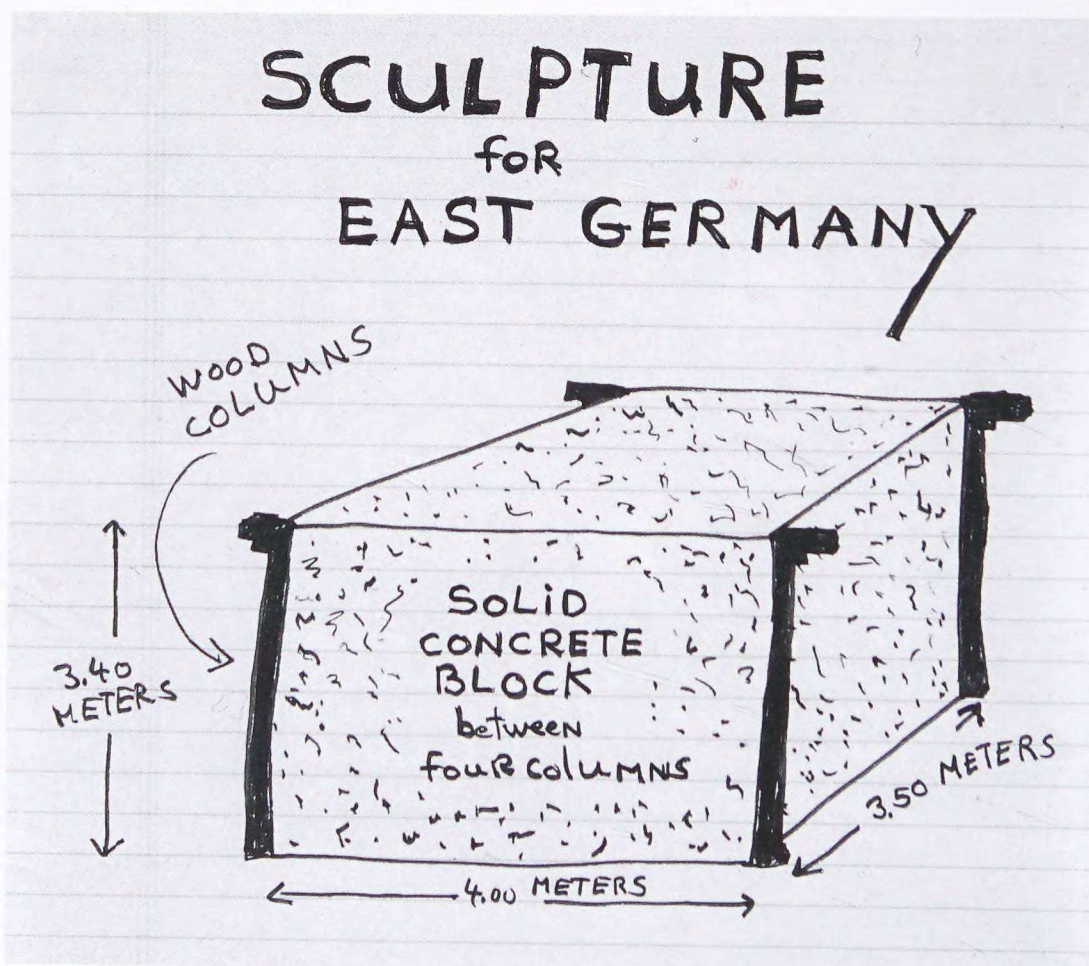 SCULPTURE
foR
EAST GERMANY
WOOD
COLUMNS
SOLiD
CONCRETE
BLOCK
between
fouR coluMNS
3.40
METERS
3.50 METERS
4.00 METERS